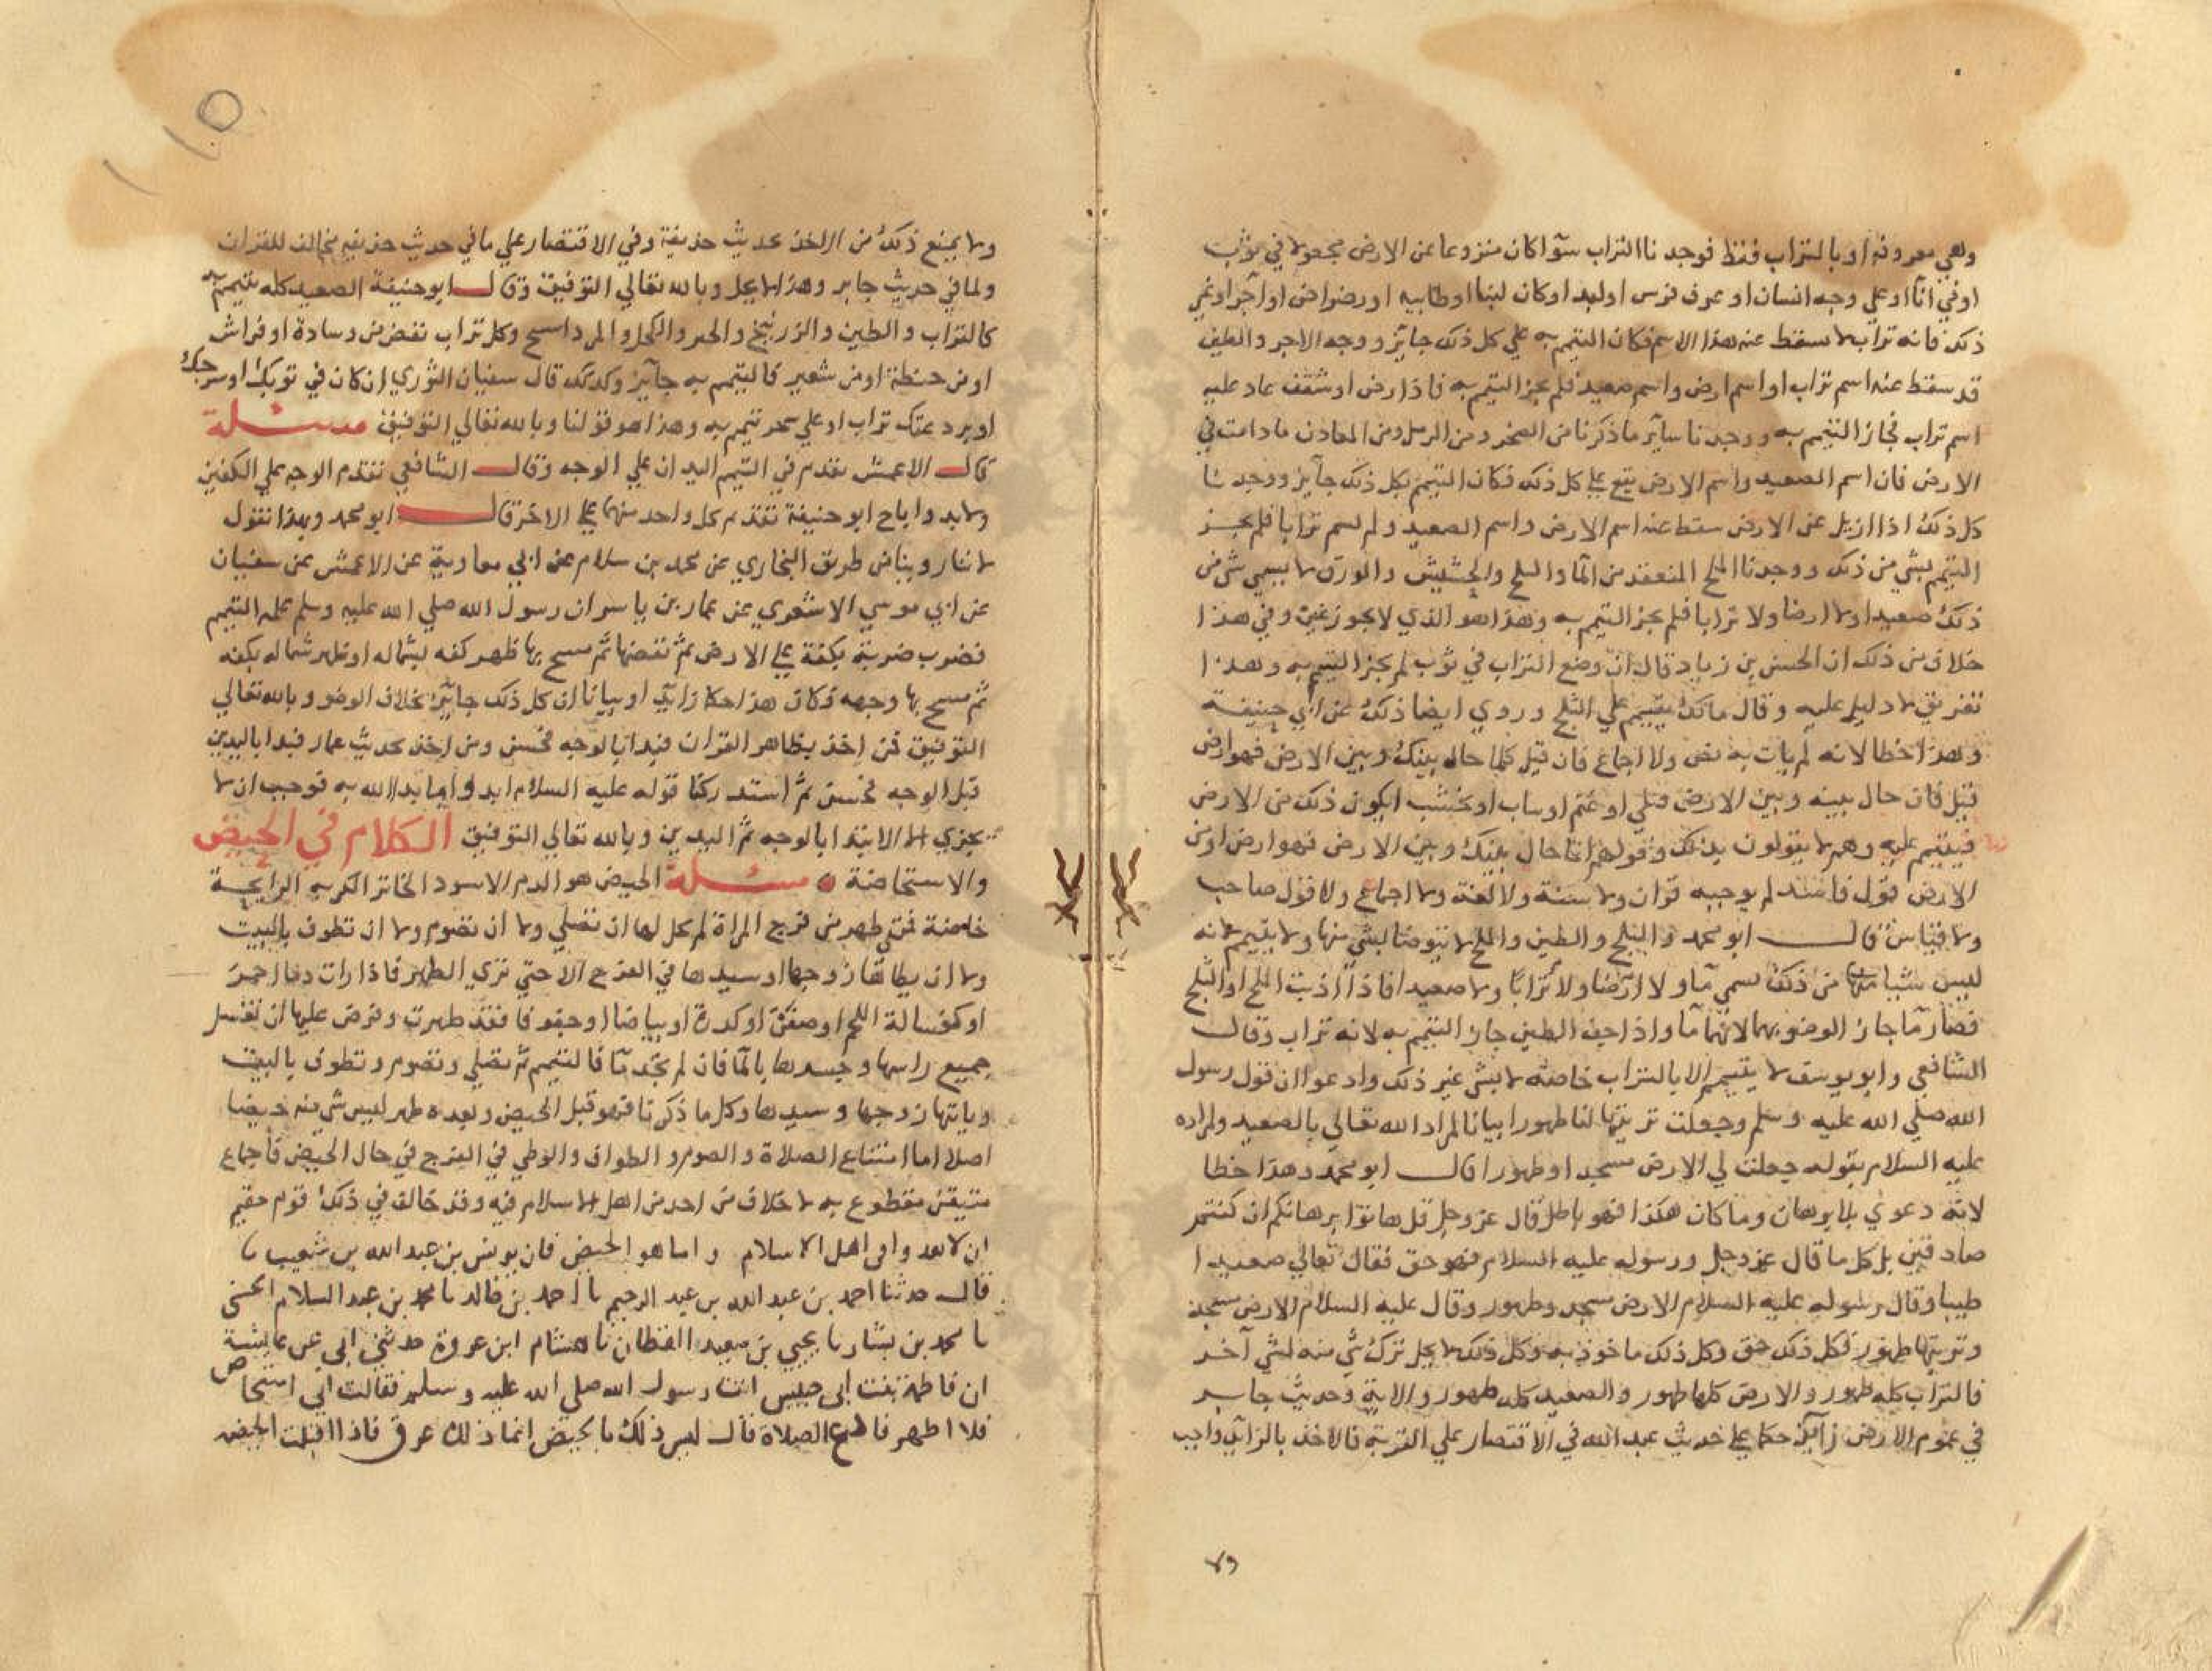 وهي معروفة او بالتراب فقط فوجدنا التراب سوآ كان منزوعا عن الارض مجعولا في ثوب
او في انآ او علي وجه انسان او عرف فرس او لبد او كان لبنا او طابيه او رضراض او آجرا او غير
ذلك فانه تراب لا يسقط عنه هذا الاسم فكان التيمم به علي كل ذلك جايز ووجه الاجر والطين
قد سقط عنه اسم تراب او اسم ارض واسم صعيد فلم يجز التيمم به فاذا رض او شقف عاد عليه
اسم تراب فجاز التيمم به ووجدنا ساير ما ذكرنا من الصخر ومن الرمل ومن المعادن ما دامت في
الارض فان اسم الصعيد واسم الارض يقع علي كل ذلك فكان التيمم بكل ذلك جايز ووجدنا
كل ذلك اذا ازيل عن الارض سقط عنه اسم الارض واسم الصعيد ولم يسم ترابا فلم يجز
التيمم بشي من ذلك ووجدنا الملح المنعقد من المآ والثلج والحشيش والورق لا يسمي شي من
ذلك صعيدا ولا ارضا ولا ترابا فلم يجز التيمم به وهذا هو الذي لا يجوز غيره وفي هذا
خلاف من ذلك ان الحسن بن زياد قال ان وضع التراب في ثوب لم يجز التيمم به وهذا
تفريق لا دليل عليه وقال مالك يتيمم علي الثلج وروي ايضا ذلك عن ابي حنيفة
وهذا خطا لانه لم يات به نص ولا اجماع فان قيل كلما حال بينك وبين الارض فهو ارض
قيل فان حال بينه وبين الارض قتلي او غنم او ثياب او خشب ايكون ذلك من الارض
فيتيمم عليه وهم لا يقولون بذلك وقولهم انما حال بينك وبين الارض فهو ارض او من
الارض قول فاسد لم يوجبه قران ولا سنة ولا لغة ولا اجماع ولا قول صاحب
ولا قياس قال ابو محمد والثلج والطين والملح لا يتوضا بشي منها ولا يتيمم لانه
ليس شيا منها من ذلك يسمي مآ ولا ارضا ولا ترابا ولا صعيدا فاذا اذيب الملح او الثلج
فصار مآ جاز الوضو بهما لانهما مآ واذا جف الطين جاز التيمم به لانه تراب وقال
الشافعي وابو يوسف لا يتيمم الا بالتراب خاصة لا بشي غير ذلك وادعوا ان قول رسول
الله صلي الله عليه وسلم وجعلت تربتها لنا طهورا بيانا لمراد الله تعالي بالصعيد ولمراده
عليه السلام بقوله جعلت لي الارض مسجدا وطهورا قال ابو محمد وهذا خطا
لانه دعوي بلا برهان وما كان هكذا فهو باطل قال عز وجل قل هاتوا برهانكم ان كنتم
صادقين بل كل ما قال عز وجل ورسوله عليه السلام فهو حق فقال تعالي صعيدا
طيبا وقال رسوله عليه السلام الارض مسجد وطهور وقال عليه السلام الارض مسجد
وتربتها طهور فكل ذلك حق وكل ذلك ماخوذ به وكل ذلك لا يحل ترك شي منه لشي آخر
فالتراب كله طهور والارض كلها طهور والصعيد كله طهور والاية وحديث جابر
في عموم الارض زآيد حكما علي حديث عبد الله في الاقتصار علي التربة فالاخذ بالزآيد واجب
ولا يمنع ذلك من الاخذ بحديث حذيفة وفي الاقتصار علي ما في حديث حذيفه مخالف للقران
ولما في حديث جابر وهذا لا يحل وبالله تعالي التوفيق وقال ابو حنيفة الصعيد كله يتيمم به
كالتراب والطين والزرنيخ والجير والكحل والمرداسنج وكل تراب نفض من وسادة او فراش
او من حنطة او من شعير فالتيمم به جآيز وكذلك قال سفيان الثوري ان كان في ثوبك او سرجك
او بردعتك تراب او علي شجر تتيمم به وهذا هو قولنا وبالله تعالي التوفيق مسئلة
قال الاعمش يقدم في التيمم اليدان علي الوجه وقال الشافعي نقدم الوجه علي الكفين
ولا بد واباح ابو حنيفة تقديم كل واحد منهما علي الاخر قال ابو محمد وبهذا نقول
لانا روينا من طريق البخاري عن محمد بن سلام عن ابي معاوية عن الاعمش عن سفيان
عن ابي موسي الاشعري عن عمار بن ياسر ان رسول الله صلي الله عليه وسلم علمه التيمم
فضرب ضربة بكفه علي الارض ثم نفضها ثم مسح بها ظهر كفه بشماله او ظهر شماله بكفه
ثم مسح بها وجهه فكان هذا حكما زآيدا وبيانا ان كل ذلك جآيز بخلاف الوضو وبالله تعالي
التوفيق فمن اخذ بظاهر القران فبدا بالوجه فحسن ومن اخذ بحديث عمار فبدا باليدين
قبل الوجه فحسن ثم استدركنا قوله عليه السلام ابدوا بما بدا الله به فوجب ان لا
يجزي الا الابتدا بالوجه ثم اليدين وبالله تعالي التوفيق الكلام في الحيض
والاستحاضة مسئلة الحيض هو الدم الاسود الخاثر الكريه الرايحة
خاصة فمتي ظهر من فرج المراة لم يحل لها ان تصلي ولا ان تصوم ولا ان تطوف بالبيت
ولا ان يطاها زوجها او سيدها في الفرج الا حتي تري الطهر فاذا رات دما احمر
او كغسالة اللحم او صفرة او كدرة او بياضا او جفوفا فقد طهرت وفرض عليها ان تغسل
جميع راسها وجسدها بالمآ فان لم تجد مآ فالتتيمم ثم تصلي وتصوم وتطوف بالبيت
وياتيها زوجها وسيدها وكل ما ذكرنا فهو قبل الحيض وبعده طهر ليس شي منه حيضا
اصلا اما امتناع الصلاة والصوم والطواف والوطي في الفرج في حال الحيض فاجماع
متيقن مقطوع به لا خلاف من احد من اهل الاسلام فيه وقد خالف في ذلك قوم
ان لا يعدوا في اهل الاسلام واما هو الحيض فان يونس بن عبد الله بن
قال حدثنا احمد بن عبد الله بن عبد الرحيم نا احمد بن خالد نا محمد بن عبد السلام الخشني
نا محمد بن بشار نا يحيي بن سعيد القطان نا هشام ابن عروة حدثني ابي عن عايشة
ان فاطمة بنت ابي حبيش اتت رسول الله صلي الله عليه وسلم فقالت اني استحاض
فلا اطهر فادع الصلاة قال ليس ذلك بالحيض انما ذلك عرق فاذا اقبلت الحيضه